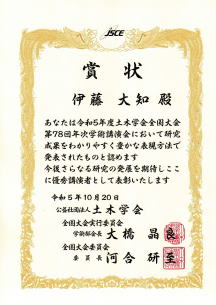 JSCE
賞状
伊藤 大知 殿
あなたは令和5年度土木学会全国大会
第78回年次学術講演会において研究
成果をわかりやすく豊かな表現方法で
発表されたものと認めます
今後さらなる研究の発展を期待しここ
に優秀講演者として表彰いたします
令和5年10月20日
公益社団法人 土木学会
全国大会実行委員会
学術部会長 大橋 晶良
全国大会委員会
委員長 河合 研至